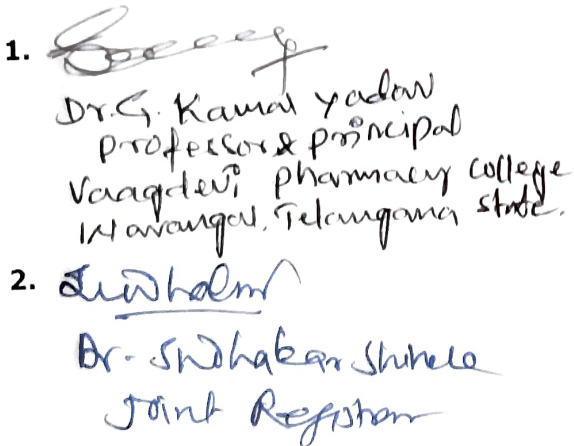 1.
Dr. G. Kamal Yadav
Professor & principal
Vaagdevi pharmacy college
Warangal, Telangana state.
2.
Dr. Sudhakar Shinde
Joint Registrar